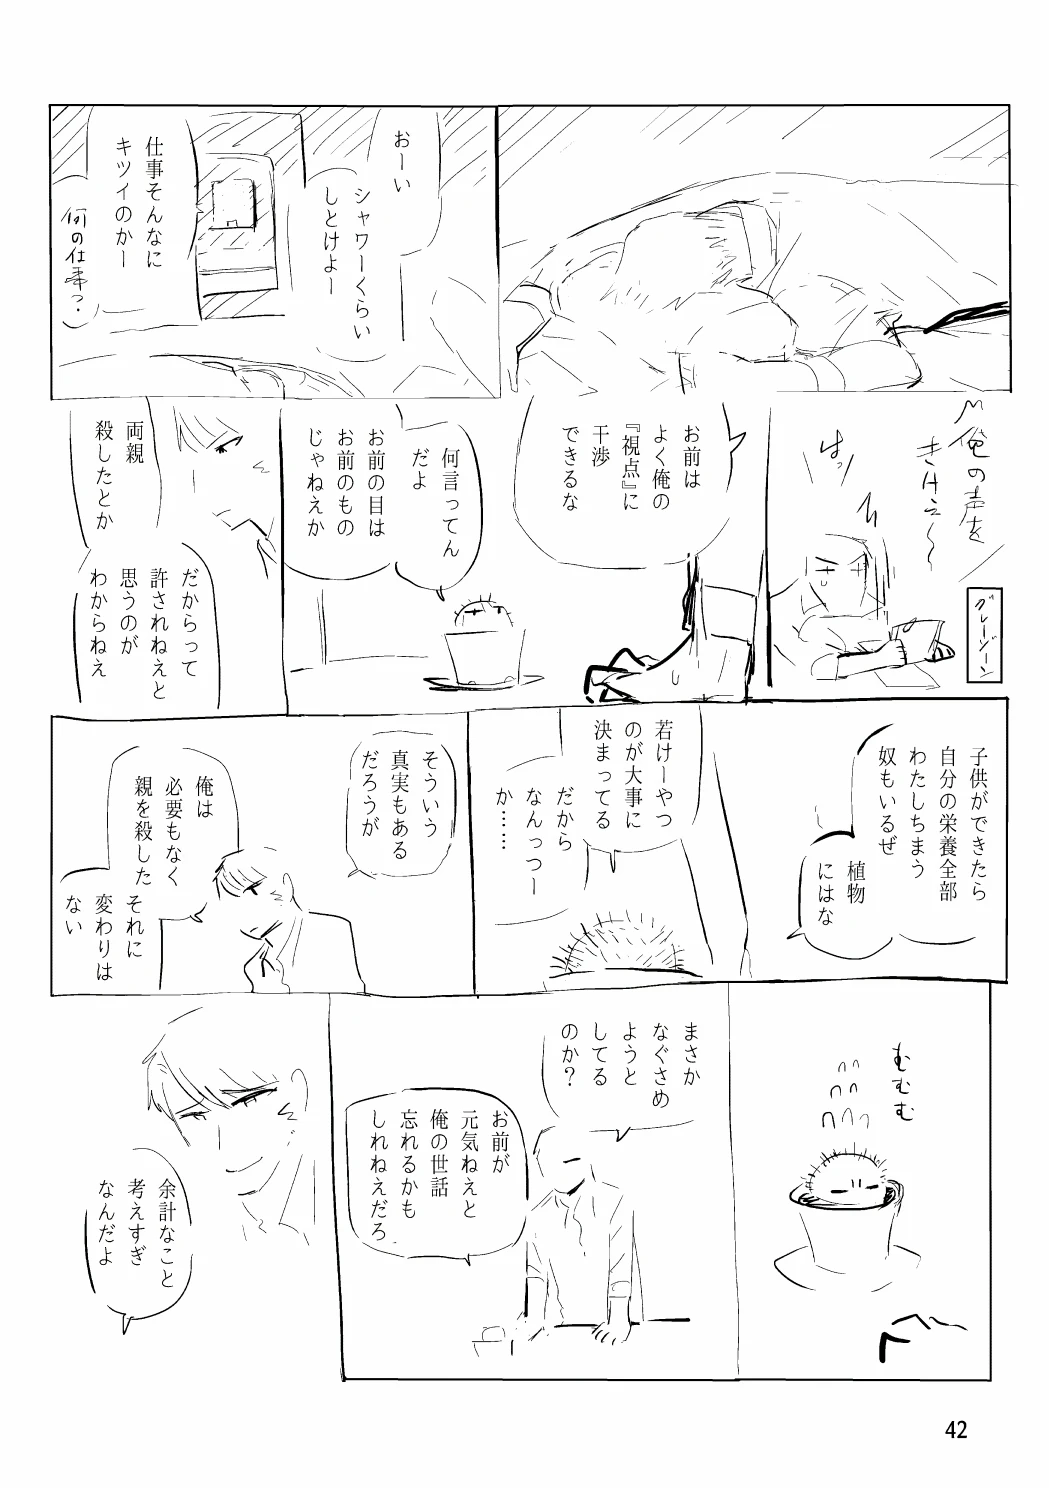 おーい
シャワーくらい
しとけよー
仕事そんなに
キツイのかー
(何の仕事?)
俺の声を
きけぇ〜
はっ
グレーゾーン
お前は
よく俺の
『視点』に
干渉
できるな
何言ってん
だよ
お前の目は
お前のもの
じゃねえか
両親
殺したとか
だからって
許されねえと
思うのが
わからねえ
子供ができたら
自分の栄養全部
わたしちまう
奴もいるぜ
植物
にはな
若けーやつ
のが大事に
決まってる
だから
なんっつー
か……
そういう
真実もある
だろうが
俺は
必要もなく
親を殺した
それに
変わりは
ない
むむむ
まさか
なぐさめ
ようと
してる
のか?
お前が
元気ねえと
俺の世話
忘れるかも
しれねえだろ
余計なこと
考えすぎ
なんだよ
42